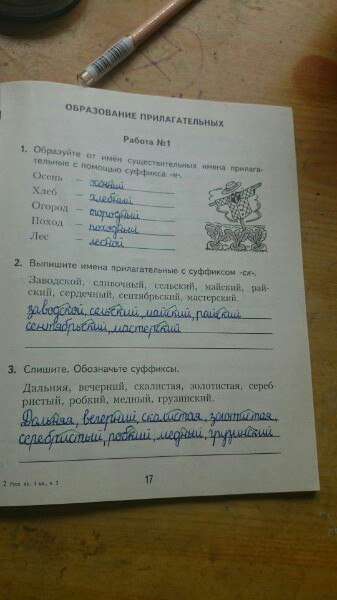 ОБРАЗОВАНИЕ ПРИЛАГАТЕЛЬНЫХ
Работа №1
1. Образуйте от имён существительных имена прилага-
тельные с помощью суффикса -н-.
Осень –
Хлеб – хлебный
Огород – огородный
Поход – походный
Лес – лесной
2. Выпишите имена прилагательные с суффиксом -ск-.
Заводской, сливочный, сельский, майский, рай-
ский, сердечный, сентябрьский, мастерский.
заводской, сельский, майский, райский
сентябрьский, мастерский
3. Спишите. Обозначьте суффиксы.
Дальняя, вечерний, скалистая, золотистая, сереб-
ристый, робкий, медный, грузинский.
Дальняя, вечерний, скалистая, золотистая
серебристый, робкий, медный, грузинский
2 Русс. яз. 4 кл., ч. 2
17